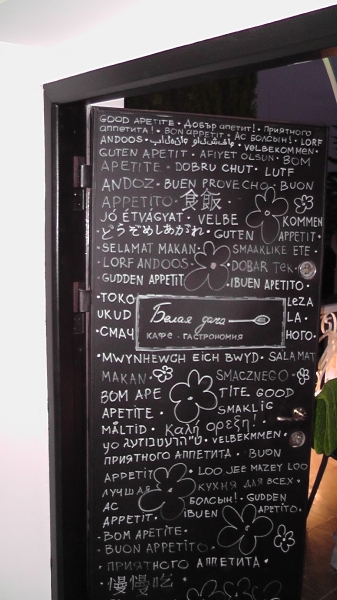 GOOD APETITE • ДОБЪР АПЕТИТ! • ПРИЯТНОГО
АППЕТИТА! • BON APPETIT • АС БОЛСЫН! • LORF
ANDOOS • VELBEKOMMEN •
GUTEN APPETIT • AFIYET OLSUN • BOM
APETITE • DOBRU CHUT • LUTF
ANDOZ • BUEN PROVECHO • BUON
APPETITO • 食飯 •
JÓ ÉTVÁGYAT • VELBE KOMMEN
どうぞめしあがれ • GUTEN APPETIT •
• SELAMAT MAKAN • SMAAKLIKE ETE •
• LORF ANDOOS • DOBAR TEK •
GUDDEN APPETIT • ¡BUEN APETITO •
• TOKO LEZA
UKUD LA •
• СМАЧ НОГО •
Белая дача
КАФЕ • ГАСТРОНОМИЯ
• MWYNHEWCH EICH BWYD • SALAMAT
MAKAN • SMACZNEGO •
BOM APE TITE GOOD
APETITE • SMAKLIG
MÅLTID • Καλή όρεξη! •
VELBEKMMEN •
ПРИЯТНОГО АППЕТИТА • BUON
APPETIT • LOO JEE MAZEY LOO
ЛУЧШАЯ КУХНЯ ДЛЯ ВСЕХ •
АС БОЛСЫН! • GUDDEN
APPETIT • ¡BUEN APETITO •
• BOM APETITE •
• BUON APPETITO •
• ПРИЯТНОГО АППЕТИТА •
• 慢慢吃 •